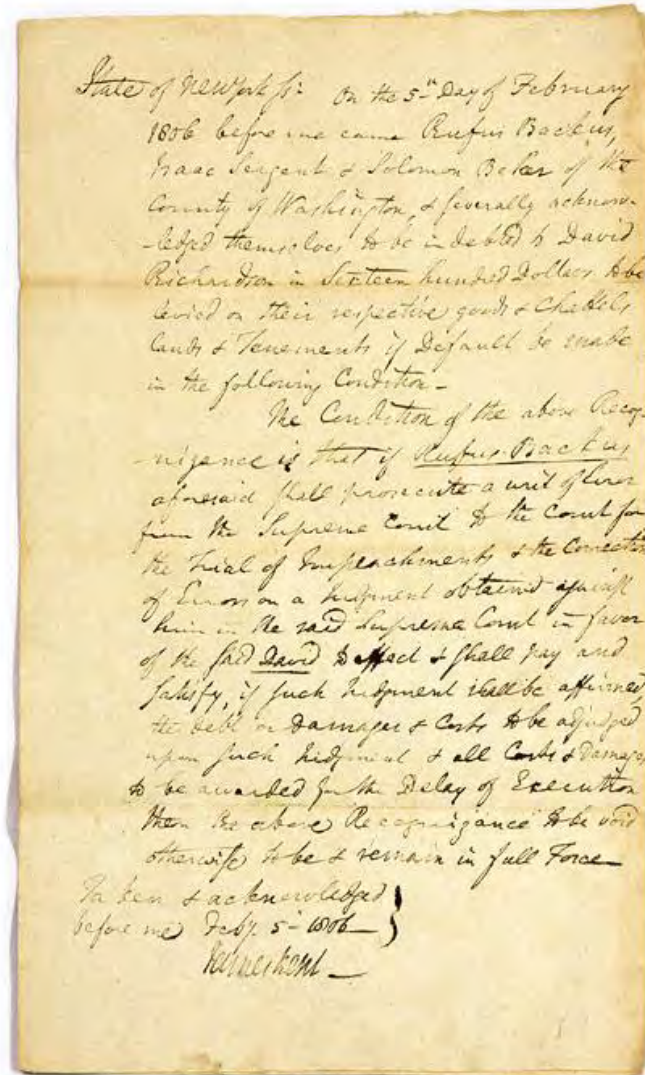 State of New York ss: On the 5th Day of February
1806 before me came Rufus Backus,
Isaac Sergent & Solomon Baker of the
County of Washington, & severally acknow-
-ledged themselves to be indebted to David
Richardson in Sixteen hundred Dollars to be
levied on their respective goods & Chattels
lands & Tenements if Default be made
in the following Condition -
The Condition of the above Recog-
-nizance is that if Rufus Backus
aforesaid shall prosecute a writ of Error
from the Supreme Court to the Court for
the Trial of Impeachments & the Correction
of Errors on a Judgment obtained against
him in the said Supreme Court in favor
of the said David to effect & shall pay and
satisfy, if such Judgment shall be affirmed,
the debt or Damages & Costs to be adjudged
upon such Judgment & all Costs & Damages
to be awarded for the Delay of Execution
then the above Recognizance to be void
otherwise to be & remain in full Force
Taken & acknowledged
before me Feby. 5th 1806
James Kent